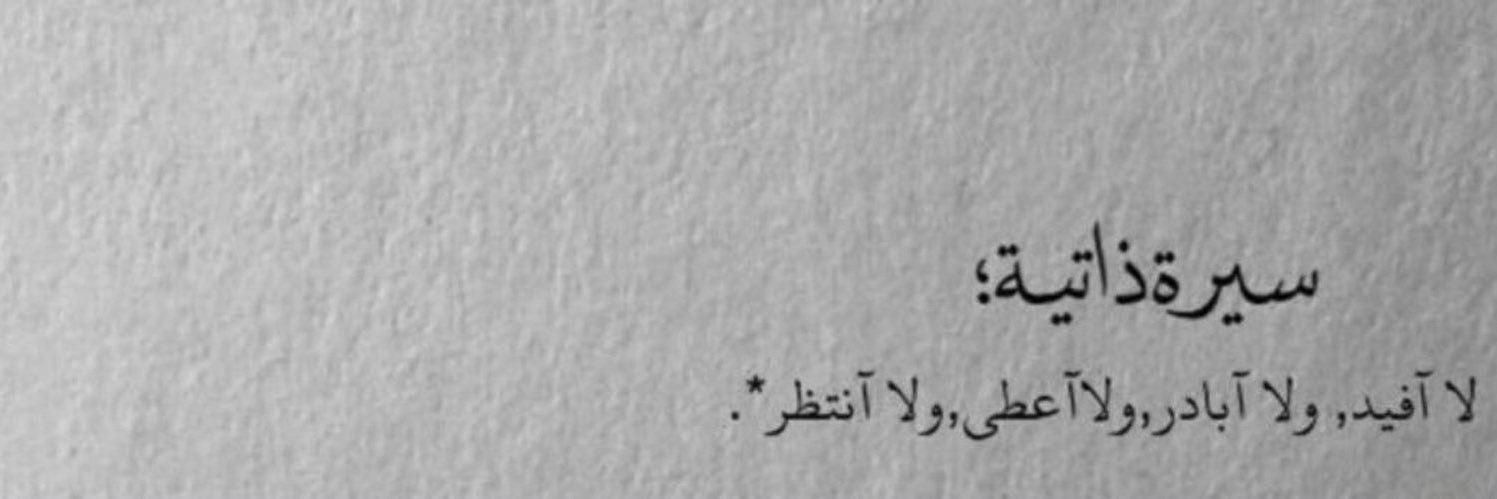 سيرةذاتية؛
لا آفيد, ولا آبادر,ولاآعطى,ولا آنتظر*.